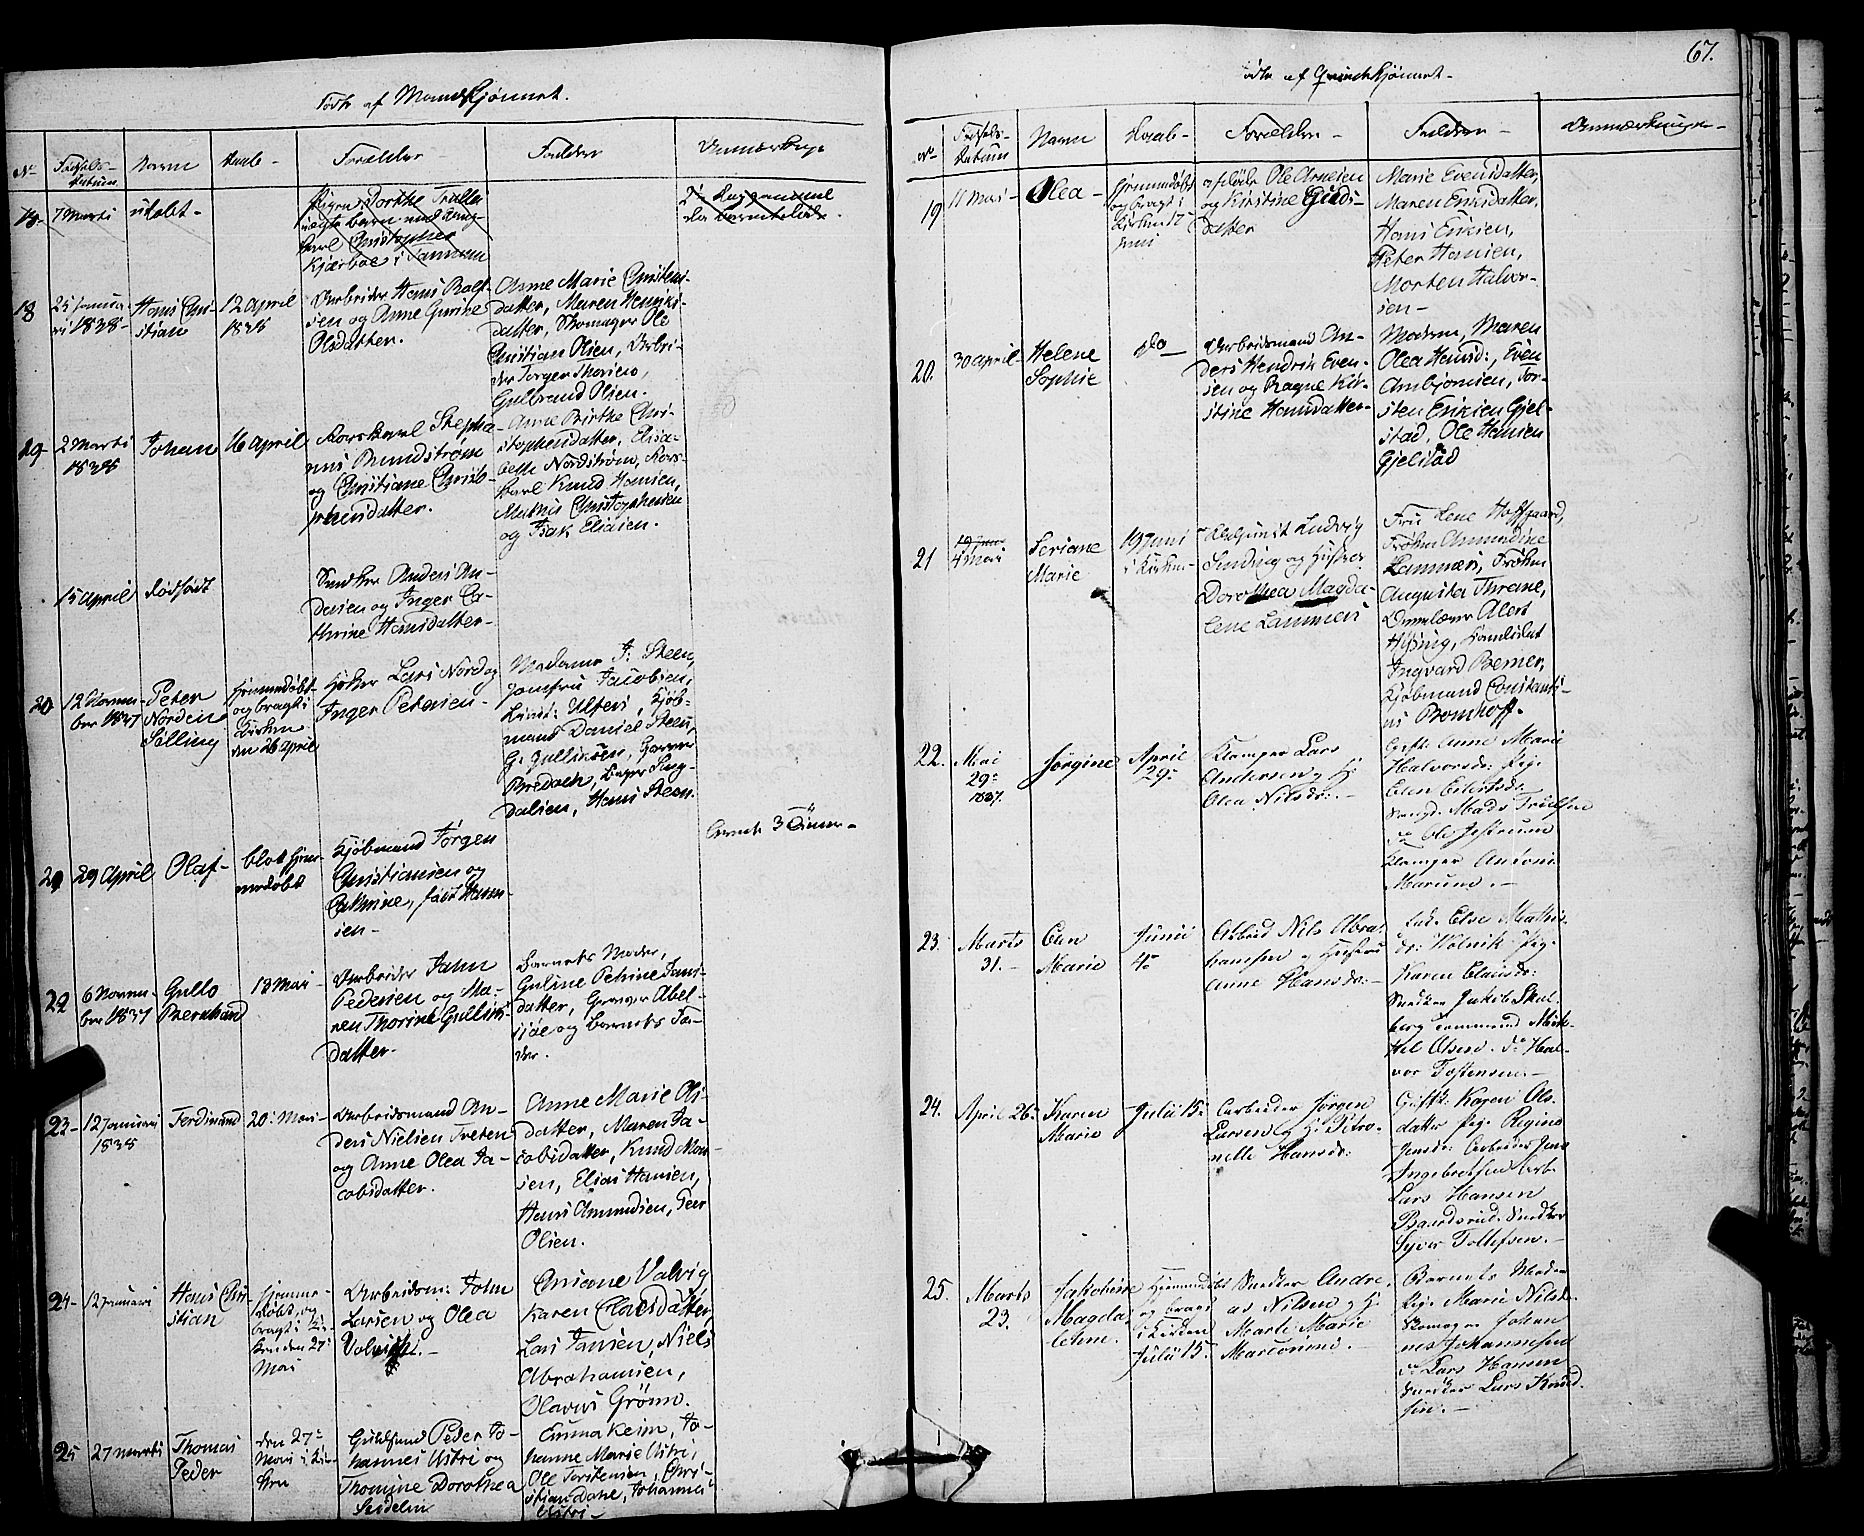 Fødte af Mandkjønnet.
No
Fødsels-
datum
Navn
Daab-
Forældre
Faddere
Anmærkning
7 Marti
udøbt-
Pigen Dorthe
Kjærboe i
18
25 Janua-
ri 1838-
Hans Chri-
stian
12 April
1838
Arbeider Hans Ralf-
sen og Anne Gurine
Olsdatter.
Anne Marie Christens-
datter, Maren Henriks-
datter, Skomager Ole
Christian Olsen, Arbei-
der Torger Thorsens,
Gulbrand Olsen.
19
2 Marti
1838
Johan
16 April
Rorskarl Stepha-
nus Brundstrøm
og Christiane Christo-
phersdatter.
Anne Birthe Chri-
stophersdatter, Elisa-
beth Nordstrøm, Rors-
karl Knud Hansen,
Mathis Christophersen
og Isak Eliasen.
15 April
dødfødt
Snedker Anders An-
dersen og Inger Ca-
thrine Hansdatter-
20
12 Novem-
ber 1837
Peter
Norden
Selling
Hjemmedøbt
og bragt i
Kirken
den 26 April
Høker Lars Nord og
Inger Petersen-
Madame J: Steen,
Jomfru Jacobsen,
mand Daniel Steen,
G. Gullinsen, Garver
Bredach, Bager Ling-
dalsen, Hans Steen.
21
29 April
Olaf-
blot hjem-
medøbt
Kjøbmand Jørgen
Christiansen og
Cathrine, født Han-
sen-
levede 3 Timer-
22
6 Novem-
ber 1837
Gullo
Bernhard
13 Mai-
Arbeider John
Pedersen og Ma-
ren Thorine Gullics-
datter.
Barnets Moder,
Guline Petrine Jans-
datter, Gørtler Abel-
siøe og Barnets Fa-
der.
23-
12 Januari
1838
Ferdinand
20: Mai-
Arbeidsmand An-
ders Nielsen Treten
og Anne Olea Ja-
cobsdatter.
Anne Marie Ols-
datter, Maren Ja-
cobsdatter, Knud Mon-
sen, Elias Hansen,
Hans Amundsen, Peer
Olsen.
24-
12 Januari
Hans Chri-
stian
Hjemme-
døbt, og
bragt i Kir-
ken den 27:
Mai
Arbeidsm: John
Larsen og Olea
Valvig.-
Ariane Valvig
Karen Claesdatter,
Lars Jansen, Niels
Abrahamsen,
Olavus Grønn.
25
27 Marti
Thomas
Peder
den 27:
Mai i Kir-
ken
Guldsmd Peder Jo-
hannes Ustri og
Thomine Dorothea
Seidelin
Emma Keim, Jo-
hanne Marie Ustri,
Ole Torstensen, Chri-
stian Dahl, Johannes
Ustri-
67.
Fødte af Qvindekjønnet-
No
Fødsels-
datum
Navn
Daab-
Forældre-
Faddere-
Anmærkninger-
19
11 Mai-
Olea-
Hjemmedøbt
og bragt i
Kirken 17
Juni
afdøde Ole Arnesen
og Kirstine Guds-
datter
Marie Evensdatter,
Maren Eriksdatter,
Hans Eriksen,
Peter Hansen,
Morten Halvor-
sen-
20.
30 April-
Helene
Sophie
do
Arbeidsmand An-
ders Hendrik Even-
sen og Ragne Kir-
stine Hansdatter-
Moderen, Maren
Olea Hansd:, Even
Arnbjørnsen, Tor-
sten Eriksen Gjel-
stad, Ole Hansen
Gjelstad
21
4 Mai
Seriane
Marie
19 Juni
i Kirken-
Adjunct Ludvig
Sinding og Hustru
Dorothea Magda-
lene Lammers
Fru Lene Hoffgaard,
Frøken Amundine
Lammers, Frøken
Augusta Thrane,
Overlærer Alert
Hysing, Kandidat
Ingvard Berner,
Kjøbmand Constanti-
us Bomhoff.
22.
Mai
29:
1837.
Jørgine
April
29:
Klamper Lars
Andersen og H:
Olea Nilsd:.-
Gift: Anne Marie
Halvorsd: Pige
Elen Eilertsd:
Mads Truelsen
Klamper Antoni
23.
Marts
31.-
Elen
Marie
Junii
4:
Arbeid Nils Abra-
hamsen og Hustru
Anne Hansd:.-
Enk. Else Mathis-
d: Wolnik Pige
Karen Clausd:
Snedker Jakob Skul-
berg Tømmermd Mik-
kel Olsen. do Hal-
vor Tostensen.-
24.
April 26:
Karen
Marie
Julii 15:
Arbeider Jørgen
Larsen og H: Petro-
nelle Hansd:
Gift: Karen Ols-
datter Pige Regine
Jensd: Arbeider Jens
Ingebretsen Arb.
Lars Hansen
Baardsrud. Snedker
Syver Tollefsen.-
25.
Marts
23.
Jakobine
Magda-
lene.
Hjemmedøbt
og bragt
i Kirken
Julii 15.
Snedker Andre-
as Nilsen og H:
Marte Marie
Barnets Moder
Pige Marie Nilsd:
Skomager Johan-
nes Johannesen
do Lars Hansen
Snedker Lars Knud-
sen.-